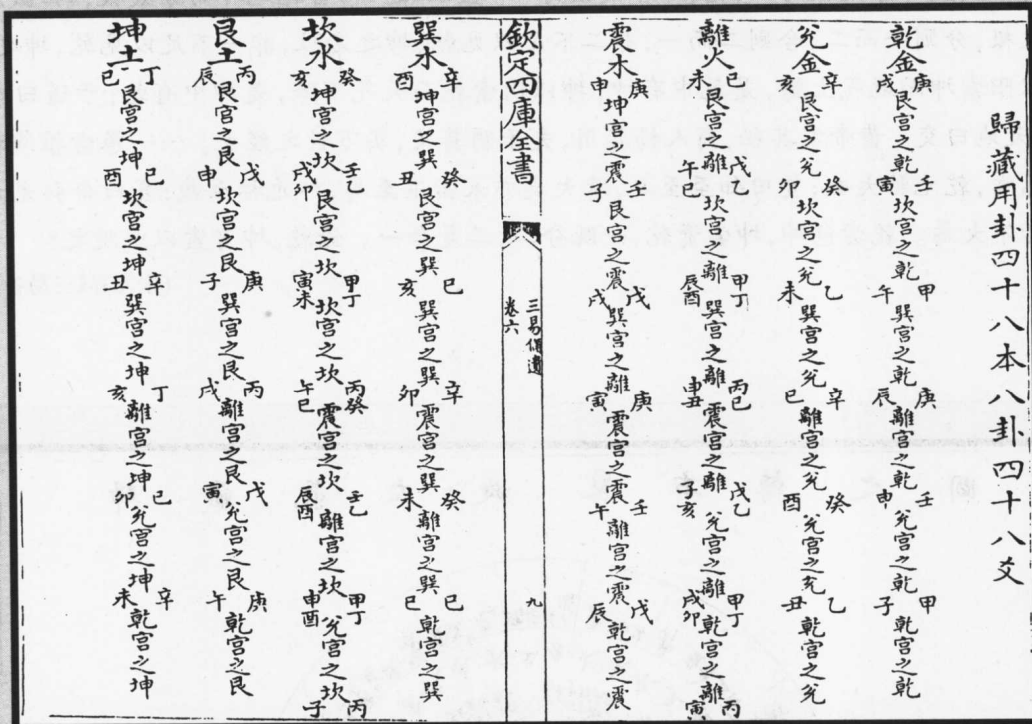 歸藏用卦四十八本八卦四十八爻
乾金庚戌艮宮之乾壬寅坎宮之乾甲午巽宮之乾庚辰離宮之乾壬申兌宮之乾甲子乾宮之乾
兌金辛亥艮宮之兌癸卯坎宮之兌乙未巽宮之兌辛巳離宮之兌癸酉兌宮之亥乙丑乾宮之兌
離火己未艮宮之離戊己午巳坎宮之離甲丁辰酉巽宮之離丙己申丑震宮之離戊乙子亥兌宮之離甲丁戌卯乾宮之離丙寅
震木庚申坤宮之震壬子艮宮之震戊戌巽宮之離庚寅震宮之震壬午離宮之震戊辰乾宮之震
欽定四庫全書
三易備遺
卷六
九
巽木辛酉坤宮之巽癸丑艮宮之巽己亥巽宮之巽辛卯震宮之巽癸未離宮之巽己巳乾宮之巽
坎水癸亥坤宮之坎壬乙戌卯艮宮之坎甲丁寅未坎宮之坎丙癸午巳震宮之坎壬乙辰酉離宮之坎甲丁申酉兌宮之坎丙子
艮土丙辰艮宮之艮戊申坎宮之艮庚子巽宮之艮丙戌離宮之艮戊寅兌宮之艮庚午乾宮之艮
坤土丁巳艮宮之坤酉坎宮之坤辛丑巽宮之坤丁亥離宮之坤己卯兌宮之坤辛未乾宮之坤